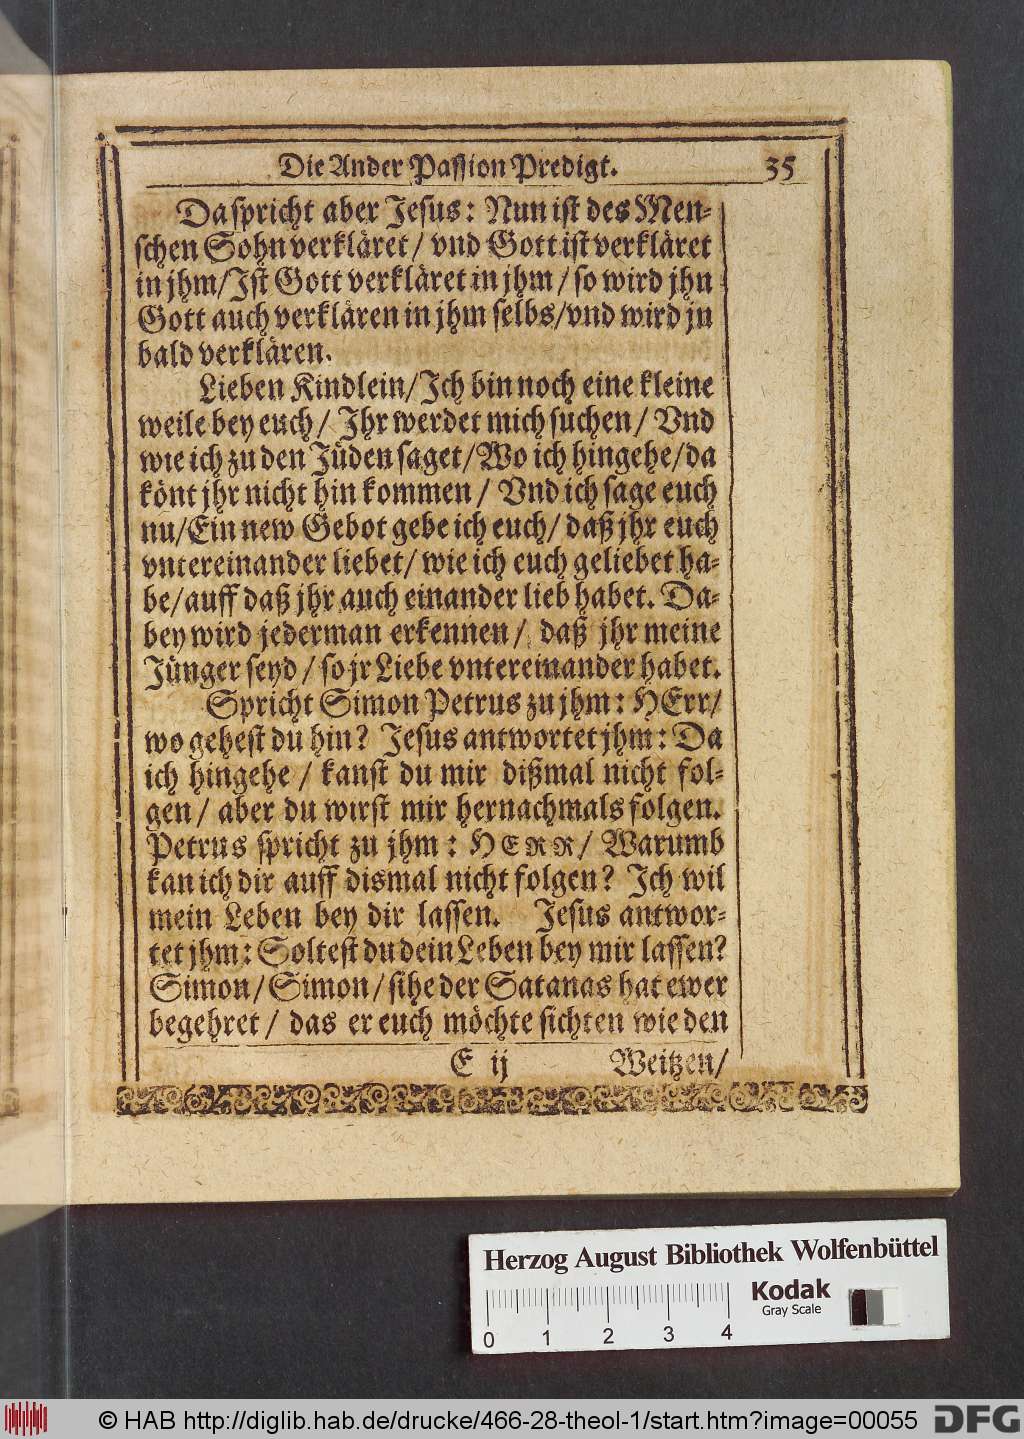 Die Ander Passion Predigt. 35
Da spricht aber Jesus: Nun ist des Men-
schen Sohn verkläret/ vnd Gott ist verkläret
in jhm/Ist Gott verkläret in jhm/so wird jhn
Gott auch verklären in jhm selbs/vnd wird jn
bald verklären.
Lieben Kindlein/Ich bin noch eine kleine
weile bey euch/ Ihr werdet mich suchen/ Vnd
wie ich zu den Jüden saget/Wo ich hingehe/da
könt jhr nicht hin kommen/ Vnd ich sage euch
nu/Ein new Gebot gebe ich euch/ daß jhr euch
vntereinander liebet/ wie ich euch geliebet ha-
be/auff daß jhr auch einander lieb habet. Da-
bey wird jederman erkennen/ daß jhr meine
Jünger seyd/so jr Liebe vntereinander habet.
Spricht Simon Petrus zu jhm: HErr/
wo gehest du hin? Jesus antwortet jhm: Da
ich hingehe/ kanst du mir dißmal nicht fol-
gen/ aber du wirst mir hernachmals folgen.
Petrus spricht zu jhm: HERR/ Warumb
kan ich dir auff dismal nicht folgen? Ich wil
mein Leben bey dir lassen. Jesus antwor-
tet jhm: Soltest du dein Leben bey mir lassen?
Simon/Simon/sihe der Satanas hat ewer
begehret/ das er euch möchte sichten wie den
E ij Weitzen/
Herzog August Bibliothek Wolfenbüttel
Kodak
Gray Scale
0 1 2 3 4
© HAB http://diglib.hab.de/drucke/466-28-theol-1/start.htm?image=00055 DFG